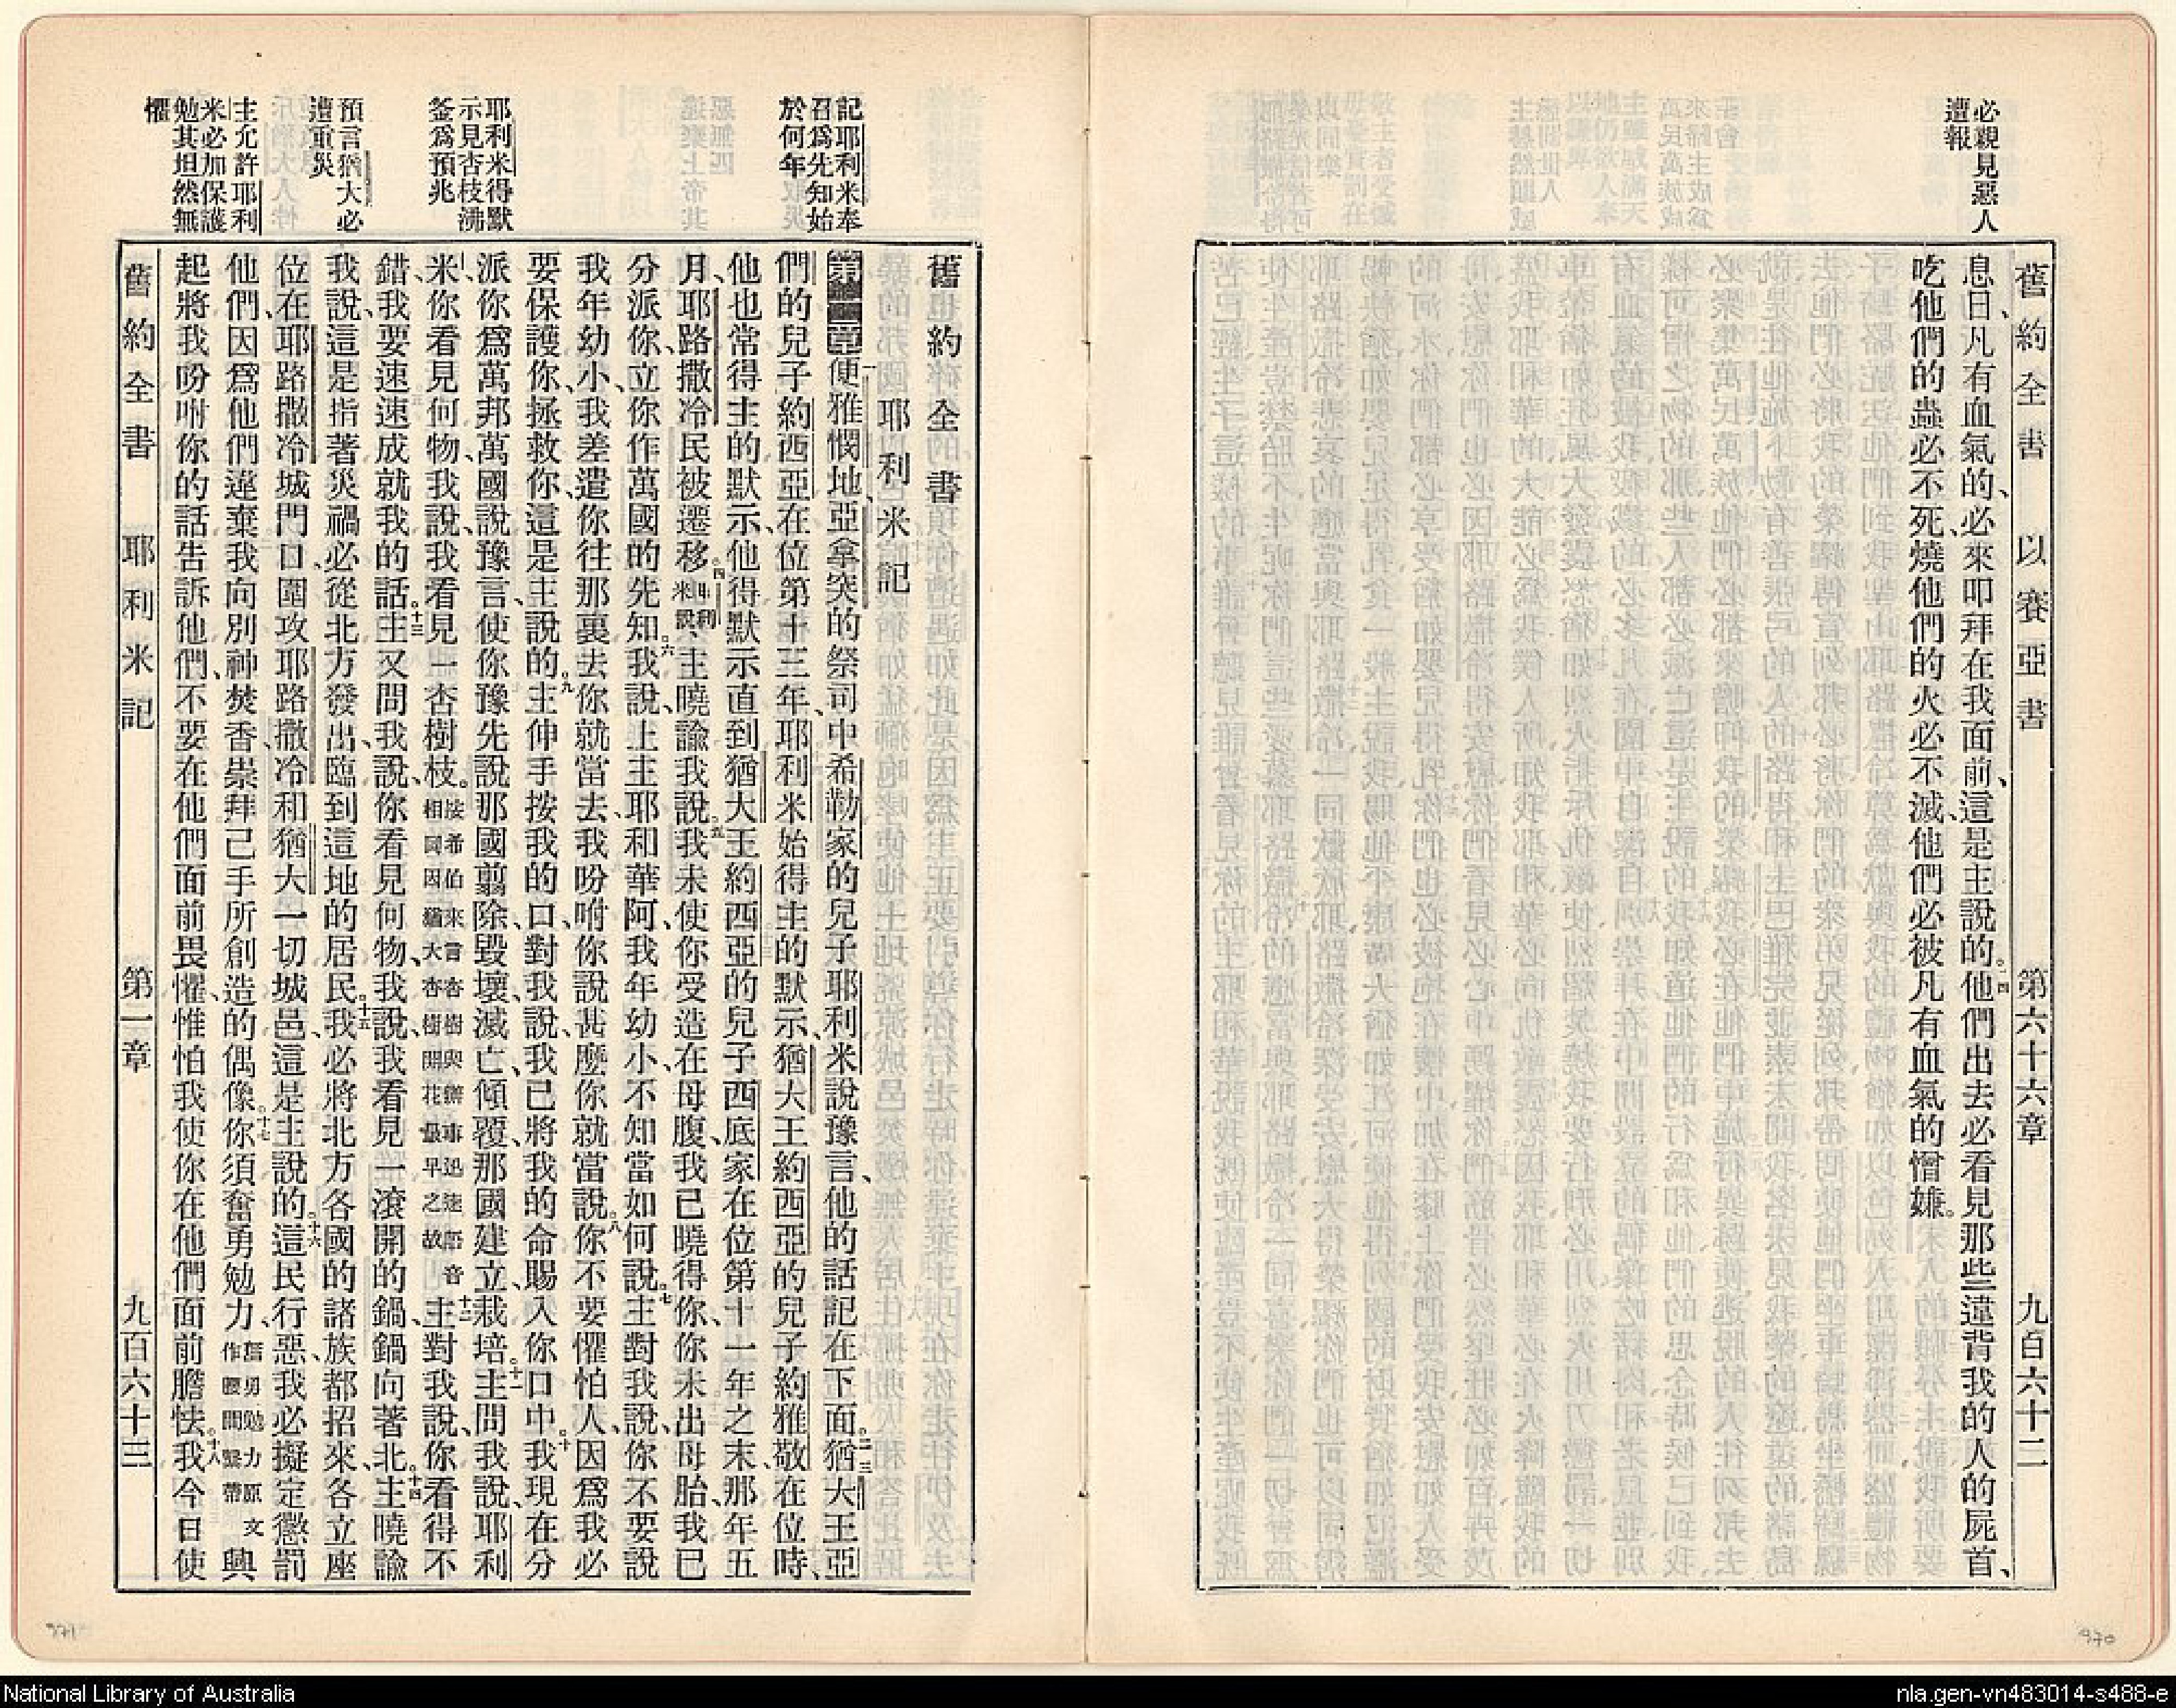 必觀見惡人
遭報
舊約全書 以賽亞書 第六十六章 九百六十二
息日、凡有血氣的、必來叩拜在我面前、這是主說的。二四他們出去必看見那些違背我的人的屍首、
吃他們的蟲必不死、燒他們的火必不滅、他們必被凡有血氣的憎嫌。
記耶利米奉
召爲先知始
於何年
耶利米得默
示見杏枝沸
釜爲預兆
預言猶大必
遭重災
主允許耶利
米必加保護
勉其坦然無
懼
舊約全書
耶利米記
第一章一便雅憫地、亞拿突的祭司中希勒家的兒子耶利米說豫言、他的話記在下面。二三猶大王亞
們的兒子約西亞在位第十三年、耶利米始得主的默示、猶大王約西亞的兒子約雅敬在位時、
他也常得主的默示、他得默示直到猶大王約西亞的兒子西底家在位第十一年之末、那年五
月、耶路撒冷民被遷移。四耶利米說、主曉諭我說。五我未使你受造在母腹、我已曉得你、你未出母胎、我已
分派你、立你作萬國的先知。六我說、主主耶和華阿、我年幼小、不知當如何說。七主對我說、你不要說
我年幼小、我差遣你往那裏去、你就當去、我吩咐你說甚麼、你就當說。八你不要懼怕人、因爲我必
要保護你、拯救你、這是主說的。九主伸手按我的口、對我說、我已將我的命賜入你口中。十我現在分
派你爲萬邦萬國說豫言、使你豫先說那國翦除、毀壞、滅亡、傾覆、那國建立、栽培。十一主問我說、耶利
米、你看見何物、我說、我看見一杏樹枝。按希伯來言杏樹與辦事迅速語音相同因猶大杏樹開花最早之故十二主對我說、你看得不
錯、我要速速成就我的話。十三主又問我說、你看見何物、我說、我看見一滾開的鍋、鍋向著北。十四主曉諭
我說、這是指著災禍必從北方發出、臨到這地的居民。十五我必將北方各國的諸族都招來、各立座
位在耶路撒冷城門口、圍攻耶路撒冷和猶大一切城邑、這是主說的。十六這民行惡、我必擬定懲罰
他們、因爲他們違棄我、向別神焚香、崇拜己手所創造的偶像。十七你須奮勇勉力、奮勇勉力原文作腰間繫帶興
起、將我吩咐你的話告訴他們、不要在他們面前畏懼、惟怕我使你在他們面前膽怯。十八我今日使
舊約全書 耶利米記 第一章 九百六十三
971
970
National Library of Australia
nla.gen-vn483014-s488-e